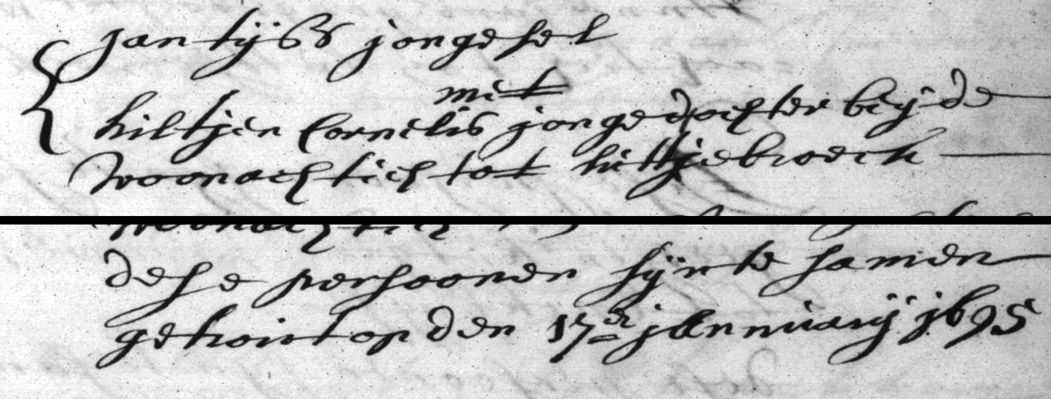 Jan tijsz jongesel
met
hiltjen Cornelis jongedochter beijde
woonachtich tot kittjebroeck
dese persoonen sijn te samen
getrout op den 17en jannuarij 1695